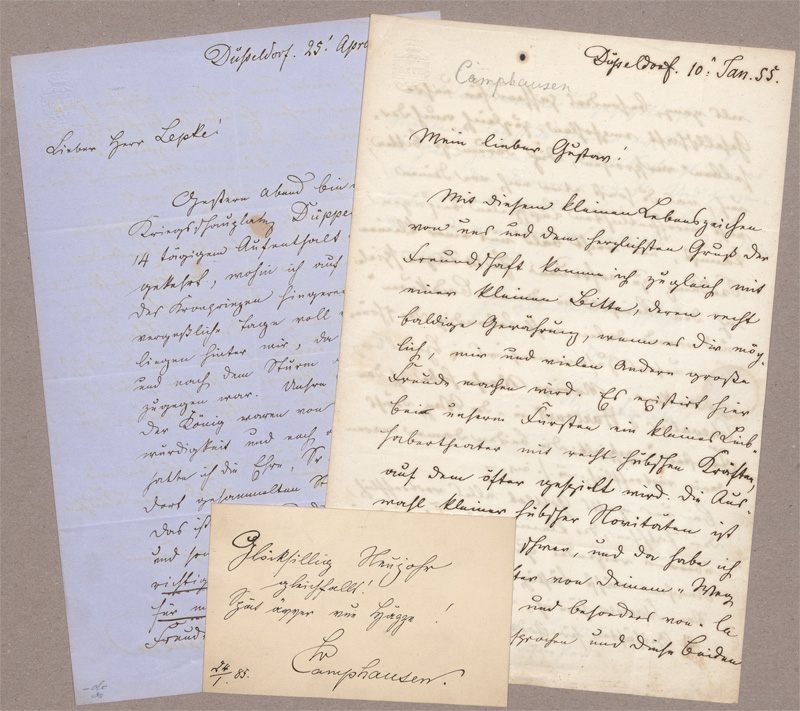 Düsseldorf. 25! Apr
Lieber Herr Lepke!
Gestern Abend bin
Kriegsschauplatz Düppe
14 tägigem Aufenthalt
gekehrt, wohin ich auf
des Kronprinzen hinger
vergeßliche Tage voll
liegen hinter mir, da
und nach dem Sturm
zugegen war. Unsre
der König waren von
würdigkeit und noch
hatte ich die Ehre, Sr
dort gesammelten St
das ist
und so
richtig
für m
Freude
Camphausen
Düsseldorf. 10! Jan. 55.
Mein lieber Gustav!
Mit diesem kleinen Lebenszeichen
von uns und dem herzlichsten Gruß der
Freundschaft komme ich zugleich mit
einer kleinen Bitte, deren recht
baldige Gewährung, wenn es dir mög-
lich, mir und vielen Andern große
Freude machen wird. Es existirt hier
bei unserm Fürsten ein kleines Lieb-
habertheater mit recht hübschen Kräften,
auf dem öfter gespielt wird. Die Aus-
wahl kleiner hübscher Novitäten ist
schwer, und da habe ich
von Deinem „Weg
und besonders von „la
sprochen und diese Beiden
Glöcksillig Neujohr
gleichfalls!
Spät ävver vun Hätze!
Camphausen.
24/1. 85.